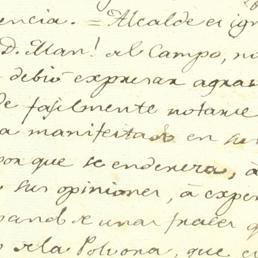 encia. = Alcalde es ign
D. Man.l del Campo, no
debió expresar agra
de facilmente notarse
a manifestado en su
por que se enderera, à
sus opiniones, à expen
pand se unas frases q
de la Polvora, que e